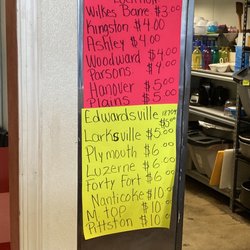 Wilkes Barre $3.00
Kingston $4.00
Ashley $4.00
Woodward $4.00
Parsons $4.00
Hanover $5.00
Plains $5.00
Edwardsville
$5.00
Larksville $5.00
Plymouth $6.00
Luzerne $6.00
Forty Fort $6.00
Nanticoke $10.00
M. TOP $10.00
Pittston $10.00